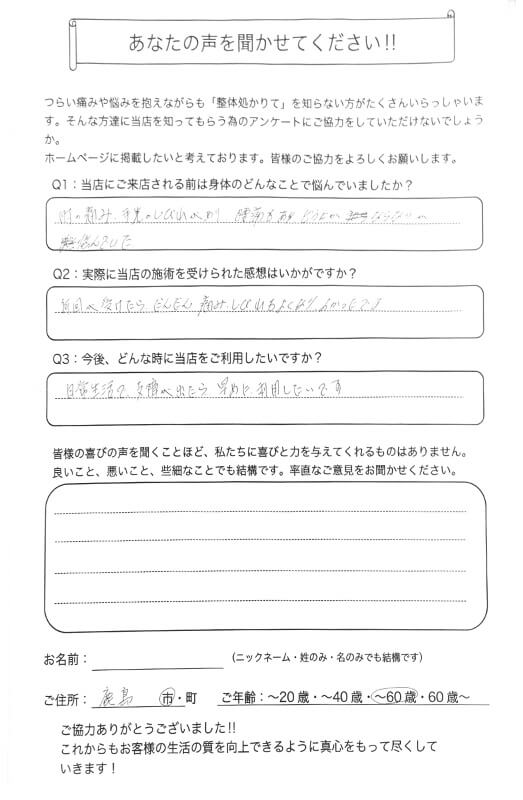 あなたの声を聞かせてください!!
つらい痛みや悩みを抱えながらも「整体処かりて」を知らない方がたくさんいらっしゃいま
す。そんな方達に当店を知ってもらう為のアンケートにご協力をしていただけないでしょう
か。
ホームページに掲載したいと考えております。皆様のご協力をよろしくお願いします。
Q1：当店にご来店される前は身体のどんなことで悩んでいましたか？
の痛み、
悩んでいた
Q2：実際に当店の施術を受けられた感想はいかがですか？
受けたら だんだん 痛み、しびれもよくなり よかったです
Q3：今後、どんな時に当店をご利用したいですか？
日常生活で 支障が出たら 早めに 利用したいです
皆様の喜びの声を聞くことほど、私たちに喜びと力を与えてくれるものはありません。
良いこと、悪いこと、些細なことでも結構です。率直なご意見をお聞かせください。
お名前： （ニックネーム・姓のみ・名のみでも結構です）
ご住所： 鹿島 市・町 ご年齢：～20歳・～40歳・～60歳・60歳～
ご協力ありがとうございました!!
これからもお客様の生活の質を向上できるように真心をもって尽くして
いきます！